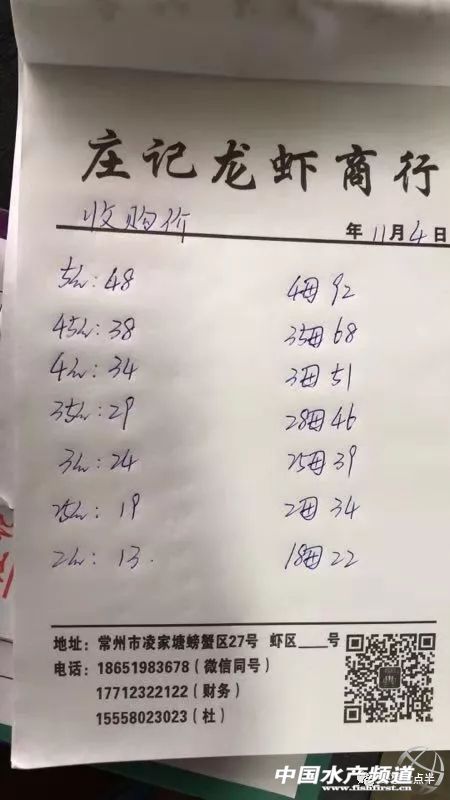 庄记龙虾商行
收购价 年 11月4日
5公: 48 4母 92
45公: 38 35母 68
4公: 34 3母 51
35公: 29 28母 46
3公: 24 25母 39
25公: 19 2母 34
2公: 13. 18母 22
地址: 常州市凌家塘螃蟹区27号 虾区___号
电话: 18651983678 (微信同号)
17712322122 (财务)
15558023023 (杜)
中国水产频道
www.fishfirst.cn
点半